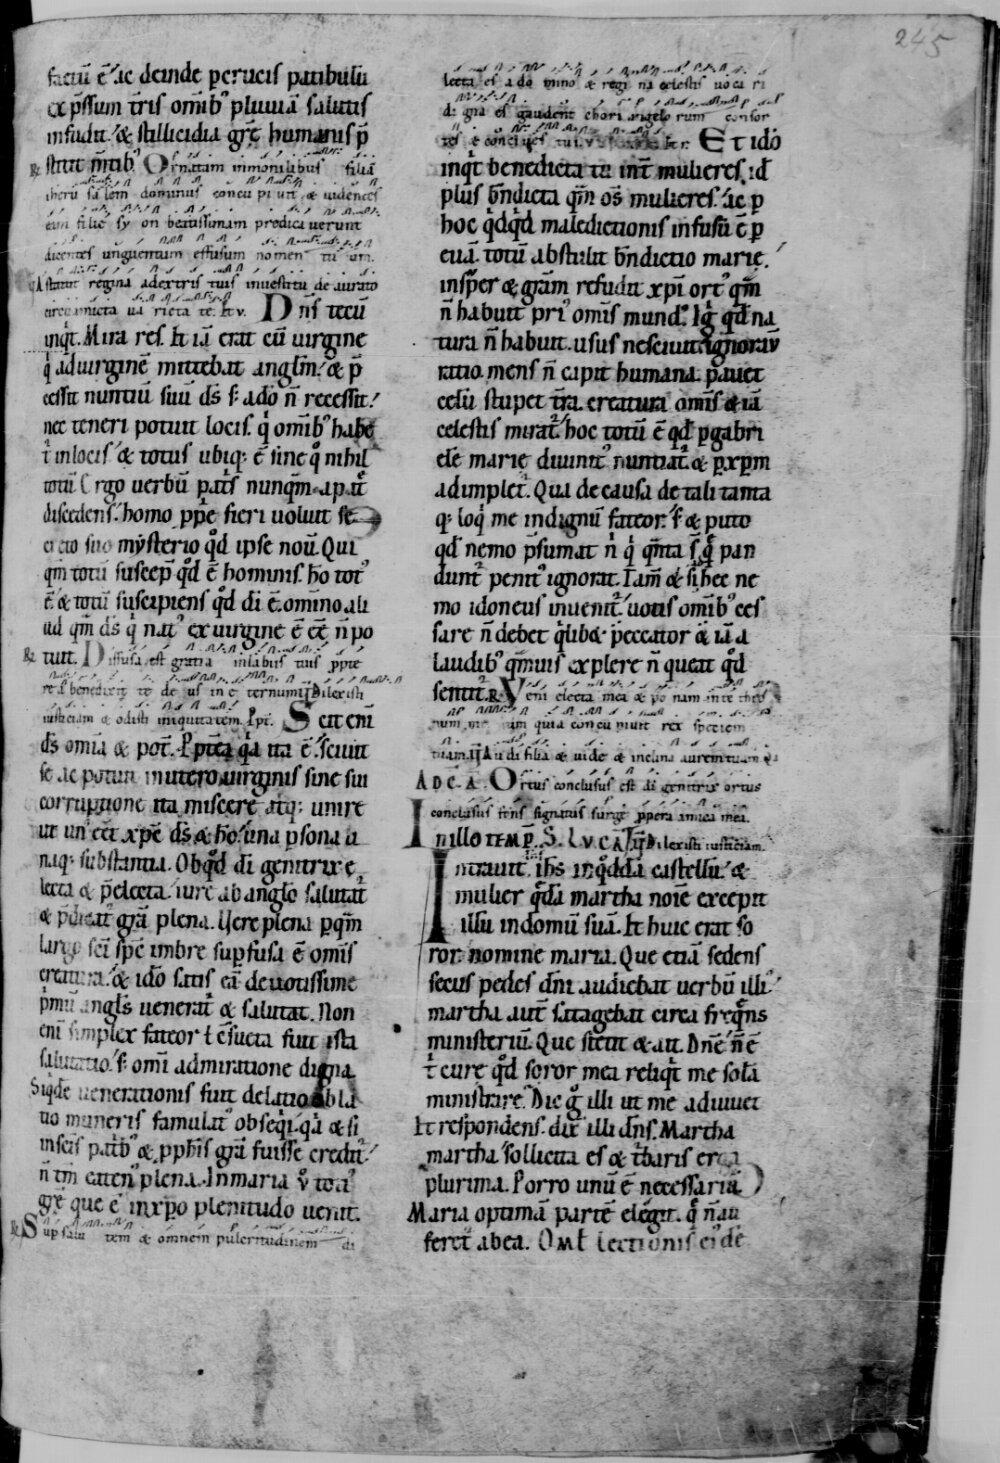 245
factũ ẽ ac deinde p crucis patibulũ
exp̃ssum tr̃is om̃ib; pluuiã salutis
infudit. & stillicidia grẽ humanis p̃
stitit m̃tib;
R Ornatam in monilibus filiã
iheru salem dominus concu piuit & uidentes
eam filie sy on beatissimam predica uerunt
dicentes unguentum effusum nomen tu um.
Astitit regina adextris tuis inuestitu de aurato
circu amicta ua rietate. Et v. Dñs tecũ
inq̃t. Mira res. Et iã erat cũ uirgine
q̃ ad uirginẽ mittebat anglm̃. & p̃
cessit nuntiũ suũ ds̃ s; ado ñ recessit.
nec teneri potuit locis. q̃ om̃ib; habe
t̃ in locis. & totus ubiq; ẽ sine q̃ nihil
totũ. Ergo uerbũ pat̃s nunq̃m apat̃
discedens. homo pp̃e fieri uoluit se
creto suo mysterio q̃d ipse nou̅. Qui
qm̃ totũ suscep̃ q̃d ẽ hominis. ho tot;
ẽ. & totũ suscipiens q̃d di ẽ. omino ali
ud qm̃ ds̃ q̃ nat; ex uirgine ẽ ẽẽ ñ po
tuit.
R Diffusa est gratia in labiis tuis ppte
rea benedixit te de us in e ternum. v Dilexisti
iusticiam & odisti iniquitatem. Ppt. Scit eni
ds̃ omia & pot̃. Ppt̃ea q̃a ita ẽ. sciuit
se ac potuit in utero uirginis sine sui
corruptione ita miscere atq; unire
ut un; ẽẽt xp̃e ds̃ & ho. una psona u
naq; substantia. Ob q̃d di genitrix e
lecta & p̃electa. iure ab anglo salutat̃
& p̃dicat̃ grã plena. Uere plena p q̃m
largo sci sp̃c imbre supfusa ẽ omis
creatura. & ido satis eã deuotissime
p̃mũ angls uenerat̃ & salutat. Non
eni simplex fateor t̃ c̃sueta fuit ista
salutatio. s; omi admiratione digna
Siq̃de uenerationis fuit delatio obla
tio muneris famulat; obseq̃i. q̃a & si
in scis pat̃b; & pphis grã fuisse credit̃.
ñ tm̃ eaten; plena. In maria u̇ tota
grẽ que ẽ in xpo plenitudo uenit.
R Sup salu tem & omnem pulcritudinem di
lecta es a do mino & regi na celestis uoca ri
di gna es gaudent chori angelo rum consor
tes & conciues tui. Et ido
inq̃t benedicta tu int̃ mulieres. id
plus bñdicta qm̃ oñs mulieres. ac p
hoc q̃dq̃d maledictionis infusũ ẽ p
euã. totũ abstulit bñdictio marie.
insp̃er & grãm refudit xpi ort; qm̃
ñ habuit pri; omis mund;. Ig̃ q̃d na
tura ñ habuit. usus nesciuit. ignorauit
ratio. mens ñ capit humana. pauet
celũ stupet tr̃a. creatura omis & iã
celestis mirat̃. hoc totũ ẽ q̃d p gabri
ele marie diuinit; nuntiat̃ & p xpm
adimplet̃. Qua de causa de tali tanta
q; loq̃ me indignũ fateor. s; & puto
q̃d nemo p̃sumat ñ q̃ q̃nta s̃ q̃ pan
dunt̃ penit; ignorat. Iam & si hec ne
mo idoneus inuenit̃. uotis omib; ces
sare ñ debet q̃lib& peccator & iã a
laudib; q̃muis explere ñ queat q̃d
sentit. R Veni electa mea & po nam in te thro
num me um quia concu piuit rex speciem
tuam. v Au di filia & uide & inclina aurem tuam
AD CA. Ortus conclusus est di genitrix ortus
conclusus fons signatus surge ppera amica mea.
In illo temp̃. S. Lucã. v Dilexisti iusticiam.
Intrauit ihs in q̃ddã castellũ. &
mulier q̃dã martha noie excepit
illũ in domũ suã. Et huic erat so
ror nomine maria. Que etiã sedens
secus pedes dni audiebat uerbũ illi;
martha aut̃ satagebat circa freq̃ns
ministeriũ. Que stetit & ait. Dnẽ ñ ẽ
t̃ cure q̃d soror mea reliq̃t me solã
ministrare. Dic g̃ illi ut me adiuuet
Et respondens. dix̃ illi dns. Martha
martha sollicita es & t̃baris erga
plurima. Porro unũ ẽ necessariũ
Maria optimã partẽ elegit. q̃ ñ au
feret̃ ab ea. OMl lectionis eide